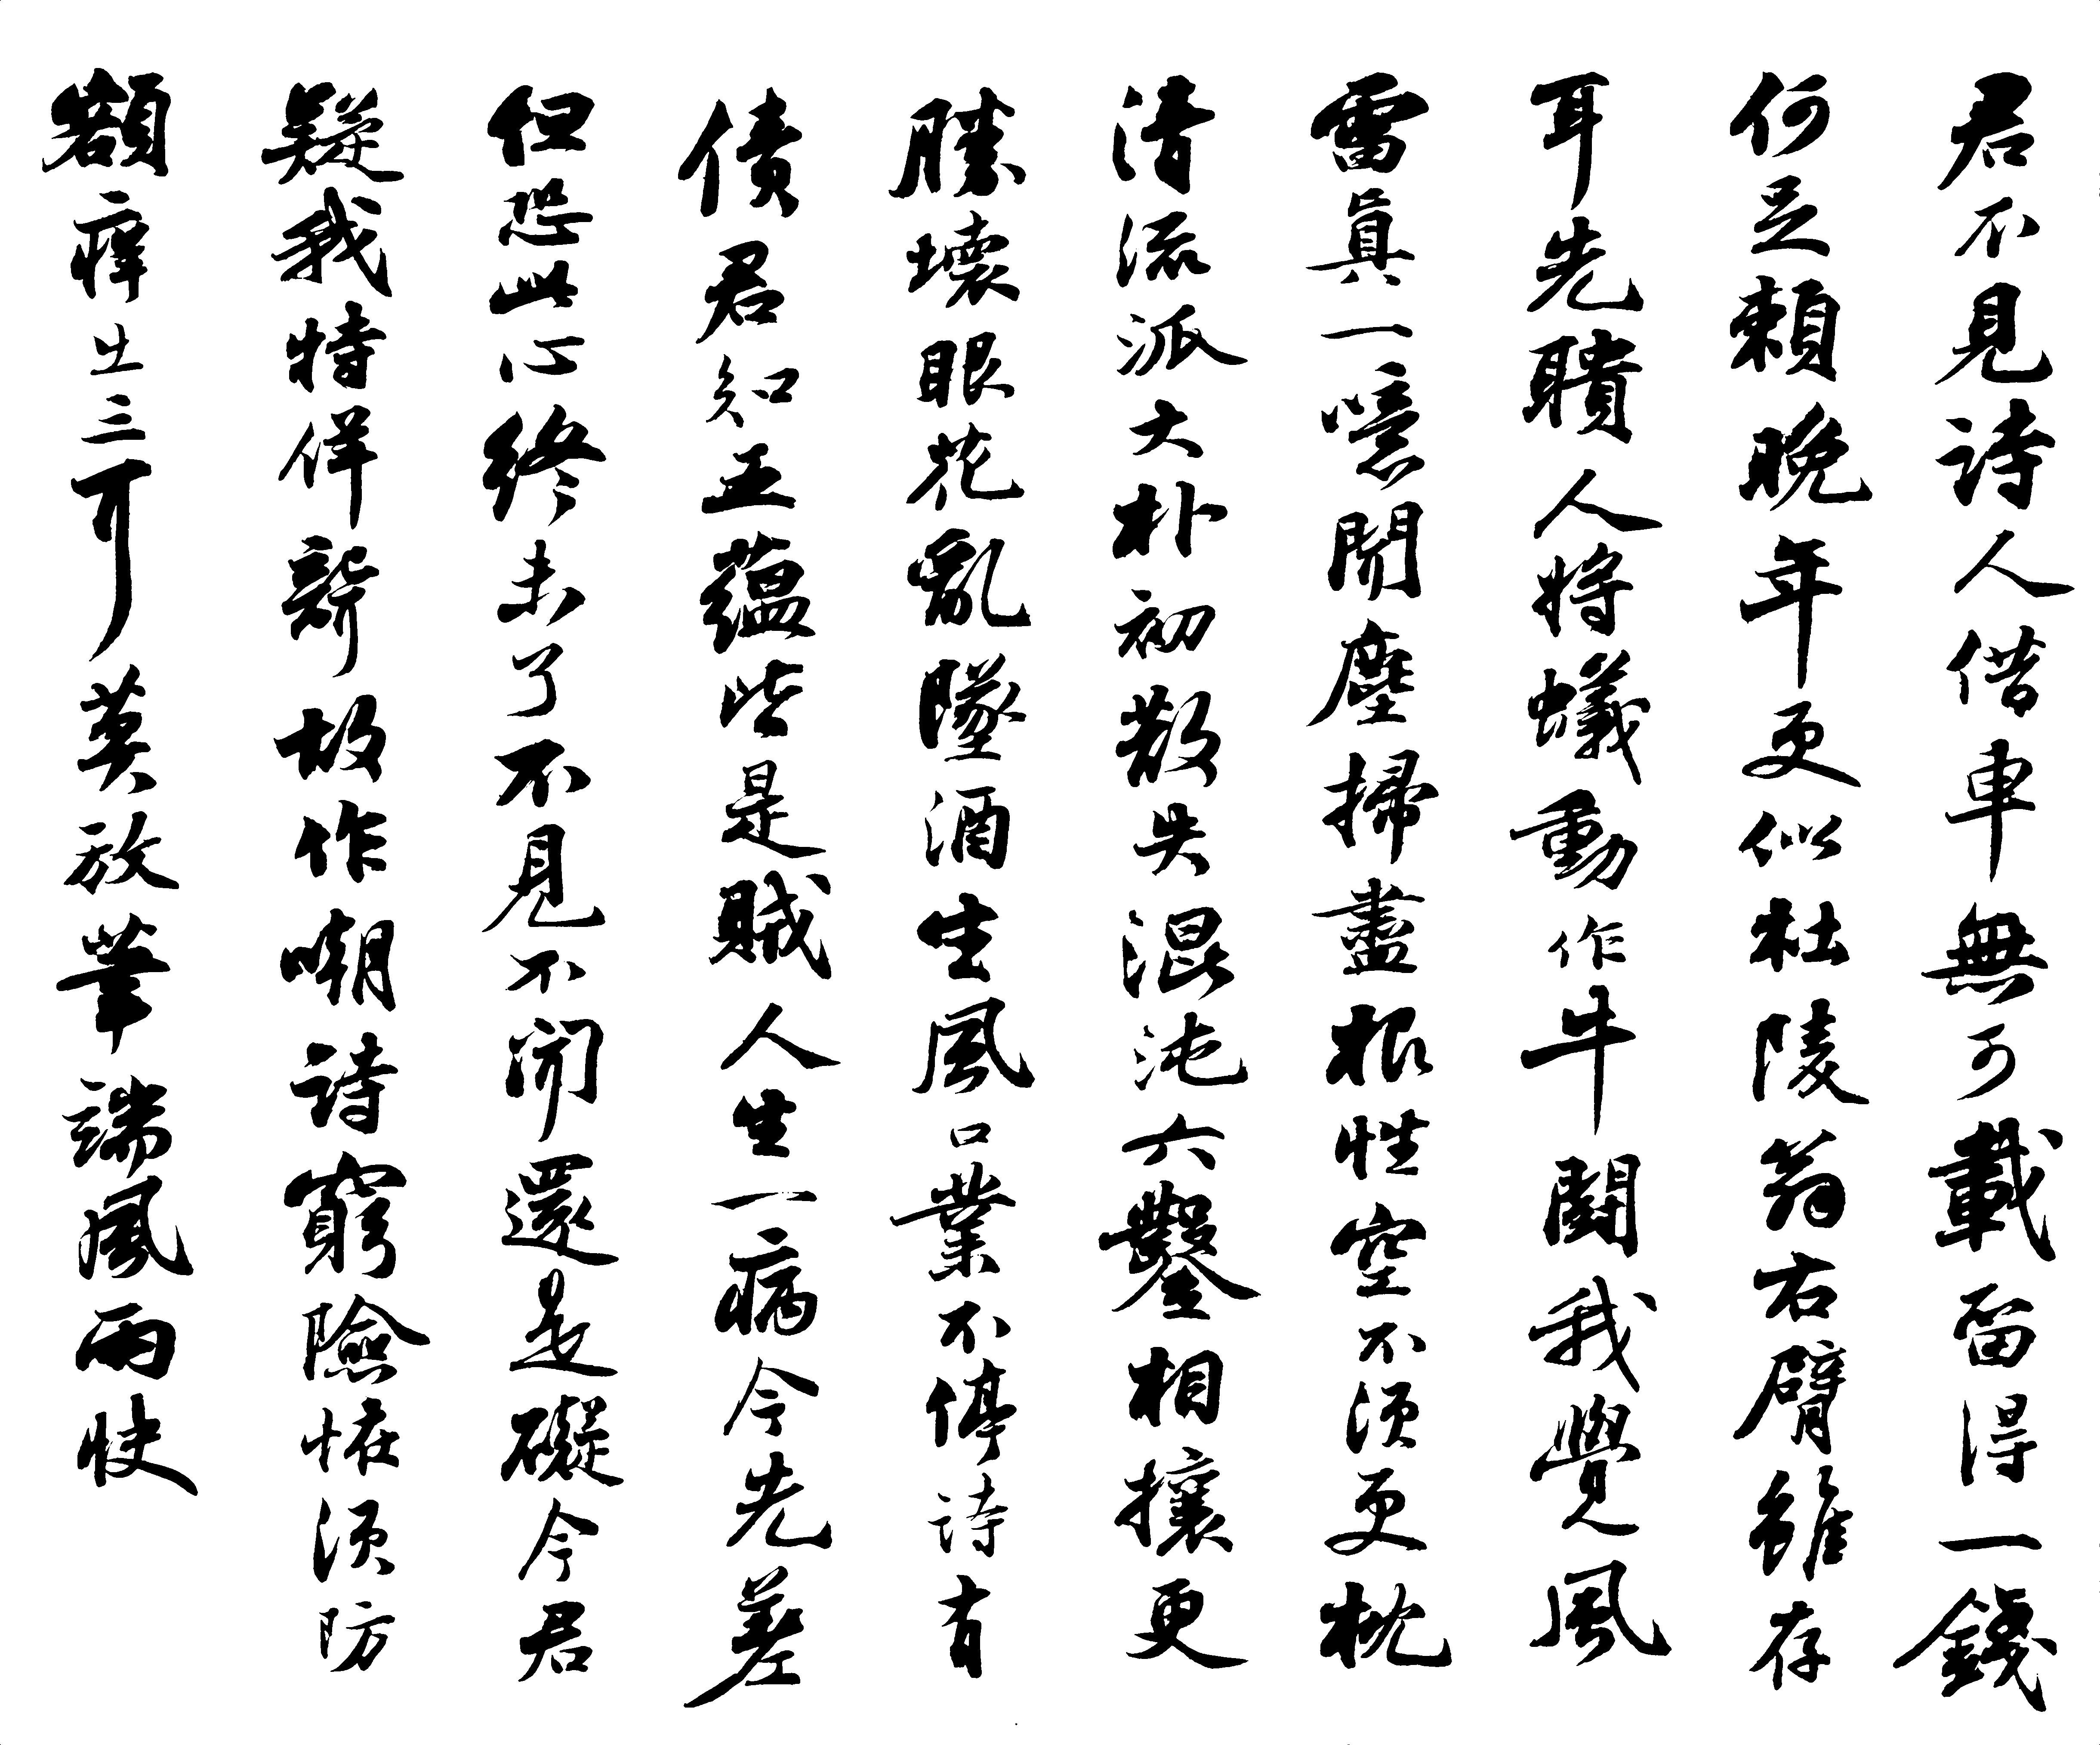 君不見詩人借車無可載留得一錢
何足賴晚年更似杜陵翁右臂雖存
耳先聵人將蟻動作牛鬪我覺風
雷真一噫聞塵掃盡根性空不須更枕
清流派大朴初散失混沌六鑿相攘更
勝壞眼花亂墜酒生風口業不停詩有
債君知五蘊皆是賊人生一病今先差
但恐此心終未了不見不聞還是礙今君
疑我特佯聾故作嘲詩窮險怪須防
額痒出三耳莫放筆端風雨快